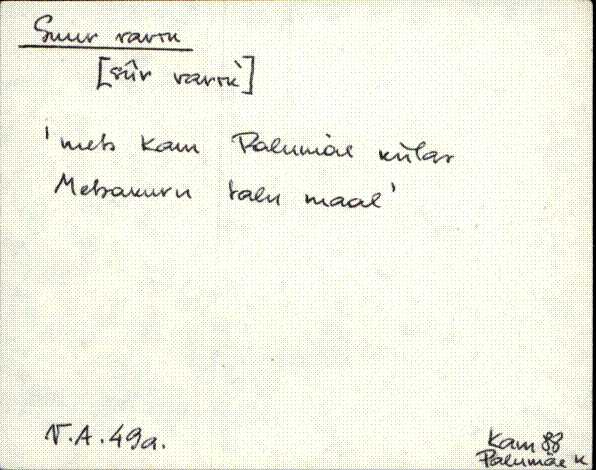 Suur varik
[sûr varik̀]
'mets Kam Palumäe külas
Metsakuru talu maal'
V.A. 49a.
Kam 88
Palumäe k